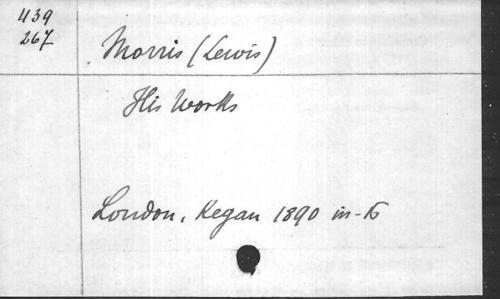 439
267
Morris (Lewis)
His Works
London, Kegan 1890 in-